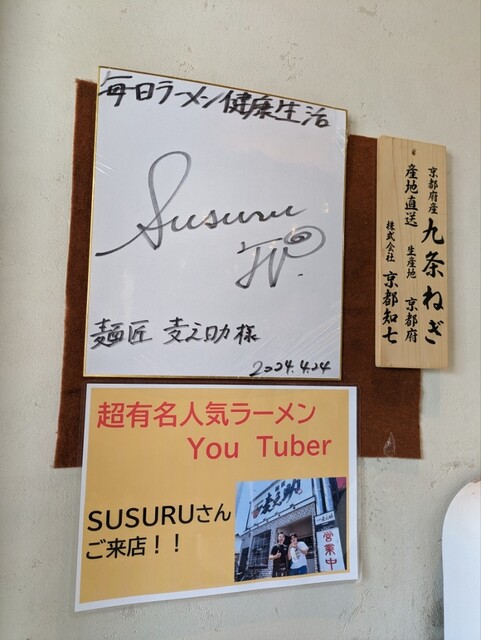 毎日ラーメン健康生活
Susuru
TV.
麺匠 麦之助 様
2024.4.24
京都府産
九条ねぎ
産地直送
生産地 京都府
株式会社 京都知七
超有名人気ラーメン
You Tuber
SUSURUさん
ご来店！！
麦之助
営業中